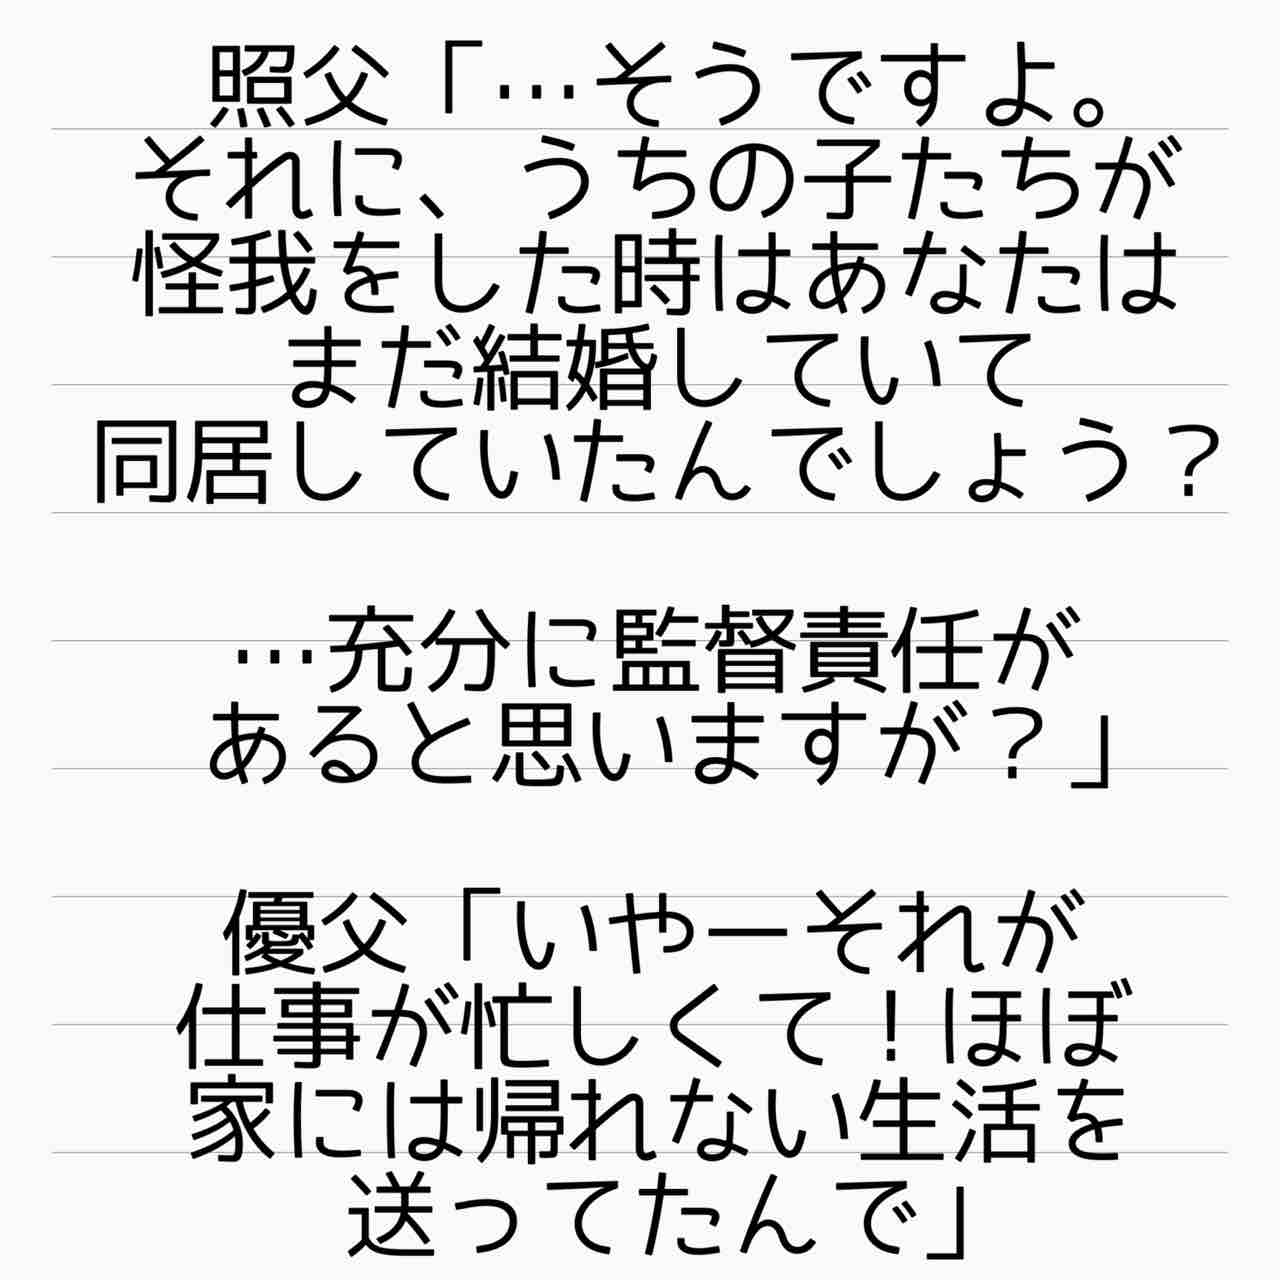 照父「…そうですよ。
それに、うちの子たちが
怪我をした時はあなたは
まだ結婚していて
同居していたんでしょう？
…充分に監督責任が
あると思いますが？」
優父「いやーそれが
仕事が忙しくて！ほぼ
家には帰れない生活を
送ってたんで」